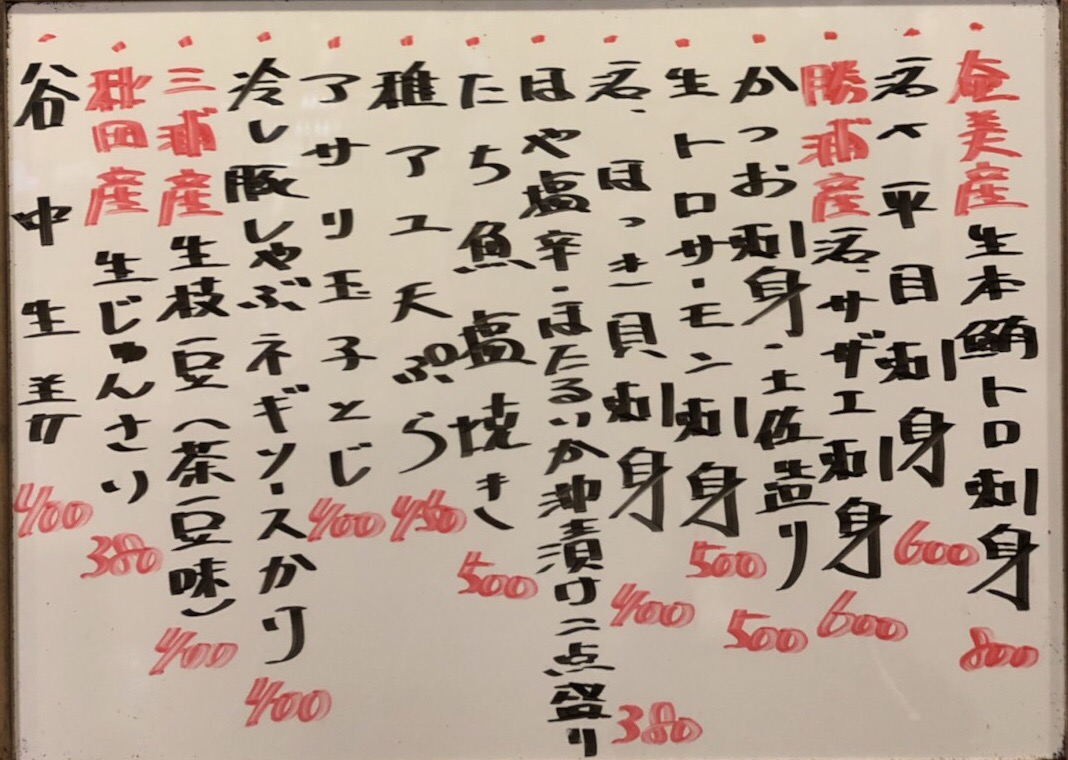 奄美産生本鮪トロ刺身 800
活〆平目刺身 600
勝浦産活サザエ刺身 600
かつお刺身・土佐造り 500
生トロサーモン刺身 500
活ほっき貝刺身 400
ほや塩辛・ほたるいか沖漬け二点盛り 380
たち魚塩焼き 500
稚アユ天ぷら 450
アサリ玉子とじ 400
冷し豚しゃぶネギソースかけ 400
三浦産生枝豆(茶豆味) 400
秋田産生じゅんさい 380
谷中生姜 400